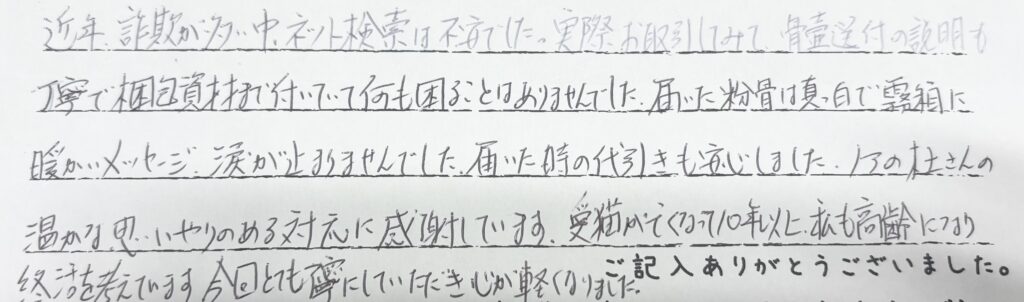 近年、詐欺が多い中、ネット検索は不安でした。実際お取引してみて、骨壷送付の説明も
丁寧で梱包資材まで付いていて何も困ることはありませんでした。届いた粉骨は真っ白で霊箱に
暖かいメッセージ、涙が止まりませんでした。届いた時の代引きも安心しました。ノアの杜さんの
温かな思いやりのある対応に感謝しています。愛猫が亡くなって10年以上、私も高齢になり
終活を考えています。今回とても丁寧にしていただき心が軽くなりました。
ご記入ありがとうございました。